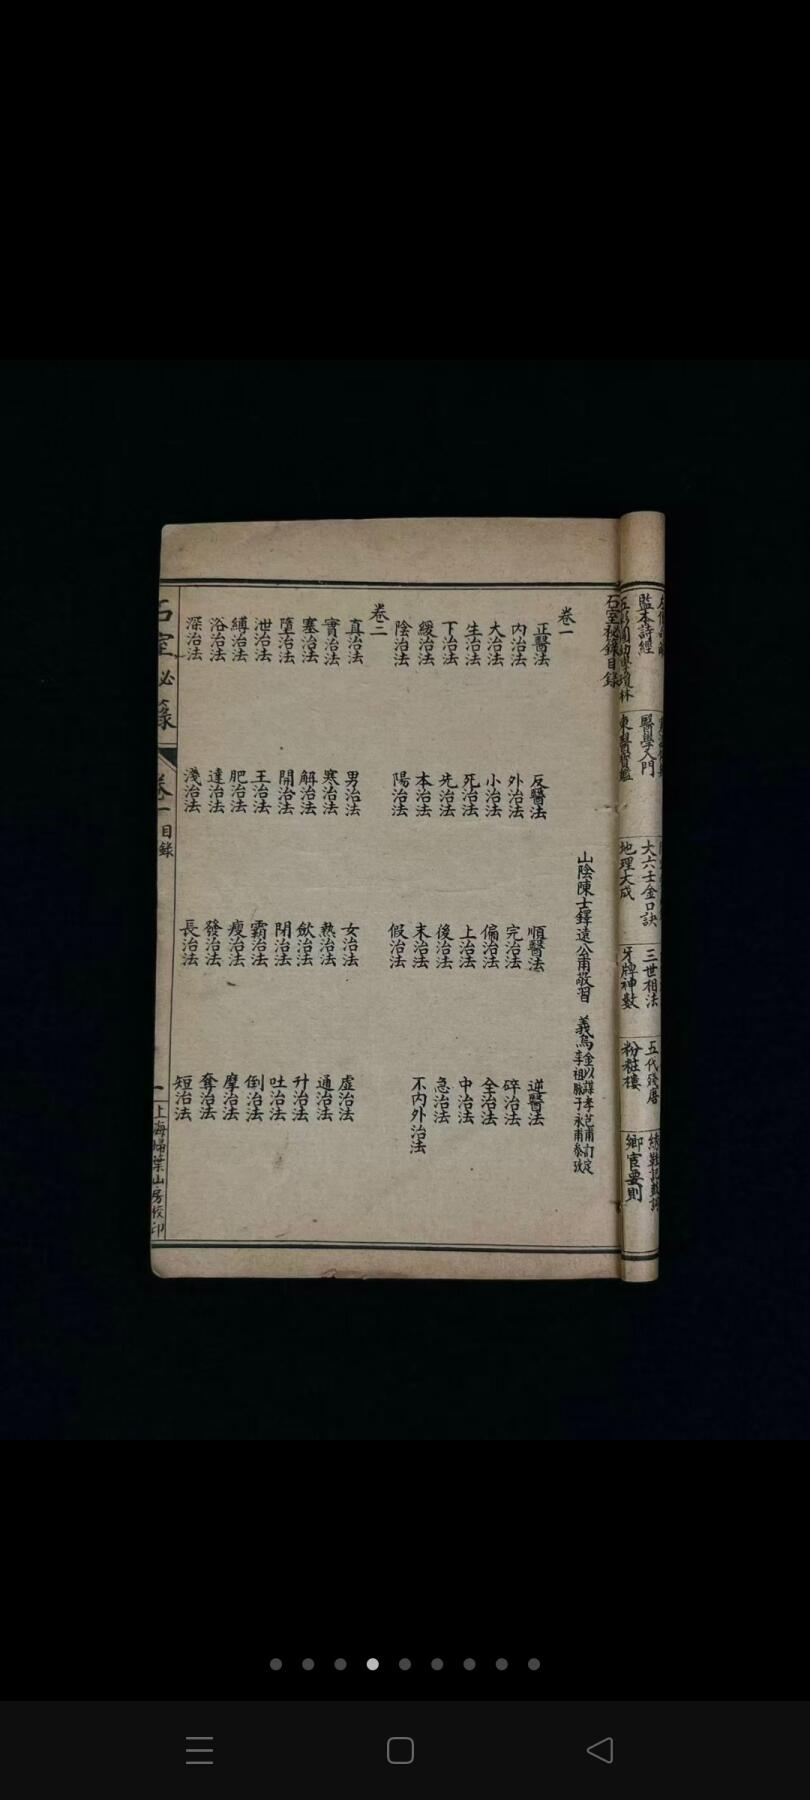 監本詩經
醫學入門
大六壬金口訣
三世相法
五代殘唐
東醫寶鑑
地理大成
牙牌神數
粉粧樓
鄉宦要則
石室秘錄目錄
山陰陳士鐸遠公甫敬習
義烏金以謀孝芑甫訂定
李祖詠子永甫參攷
卷一
正醫法 反醫法 順醫法 逆醫法
內治法 外治法 完治法 碎治法
大治法 小治法 偏治法 全治法
生治法 死治法 上治法 中治法
下治法 先治法 後治法 急治法
緩治法 本治法 末治法 不內外治法
陰治法 陽治法 假治法
卷二
真治法 男治法 女治法 虛治法
實治法 寒治法 熱治法 通治法
塞治法 解治法 斂治法 升治法
墮治法 開治法 閉治法 吐治法
泄治法 王治法 霸治法 倒治法
縛治法 肥治法 瘦治法 摩治法
浴治法 達治法 發治法 奪治法
深治法 淺治法 長治法 短治法
石室秘籙
卷一
目錄
一
上海掃葉山房校印